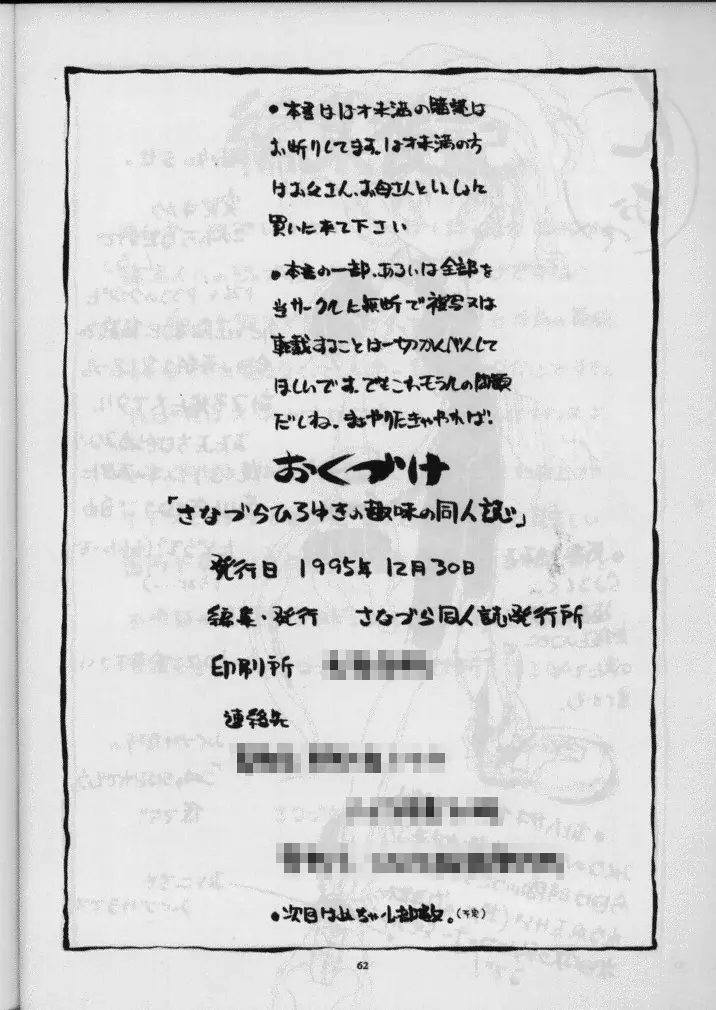 ●本書は18才未満の購読は
お断りしてます。18才未満の方
はお父さん、お母さんといっしょに
買いに来て下さい
●本書の一部、あるいは全部を
当サークルに無断で複写又は
転載することは一切かんべんして
ほしいです。でもこれモラルの問題
だしね。まぁやりたきゃやれば!
おくづけ
「さなづらひろゆきの趣味の同人誌」
発行日 1995年12月30日
編集・発行 さなづら同人誌発行所
印刷所
連絡先
●次回は
62